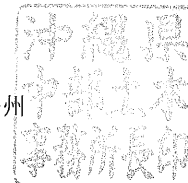 沖縄県
中部土木
州
事務所長印